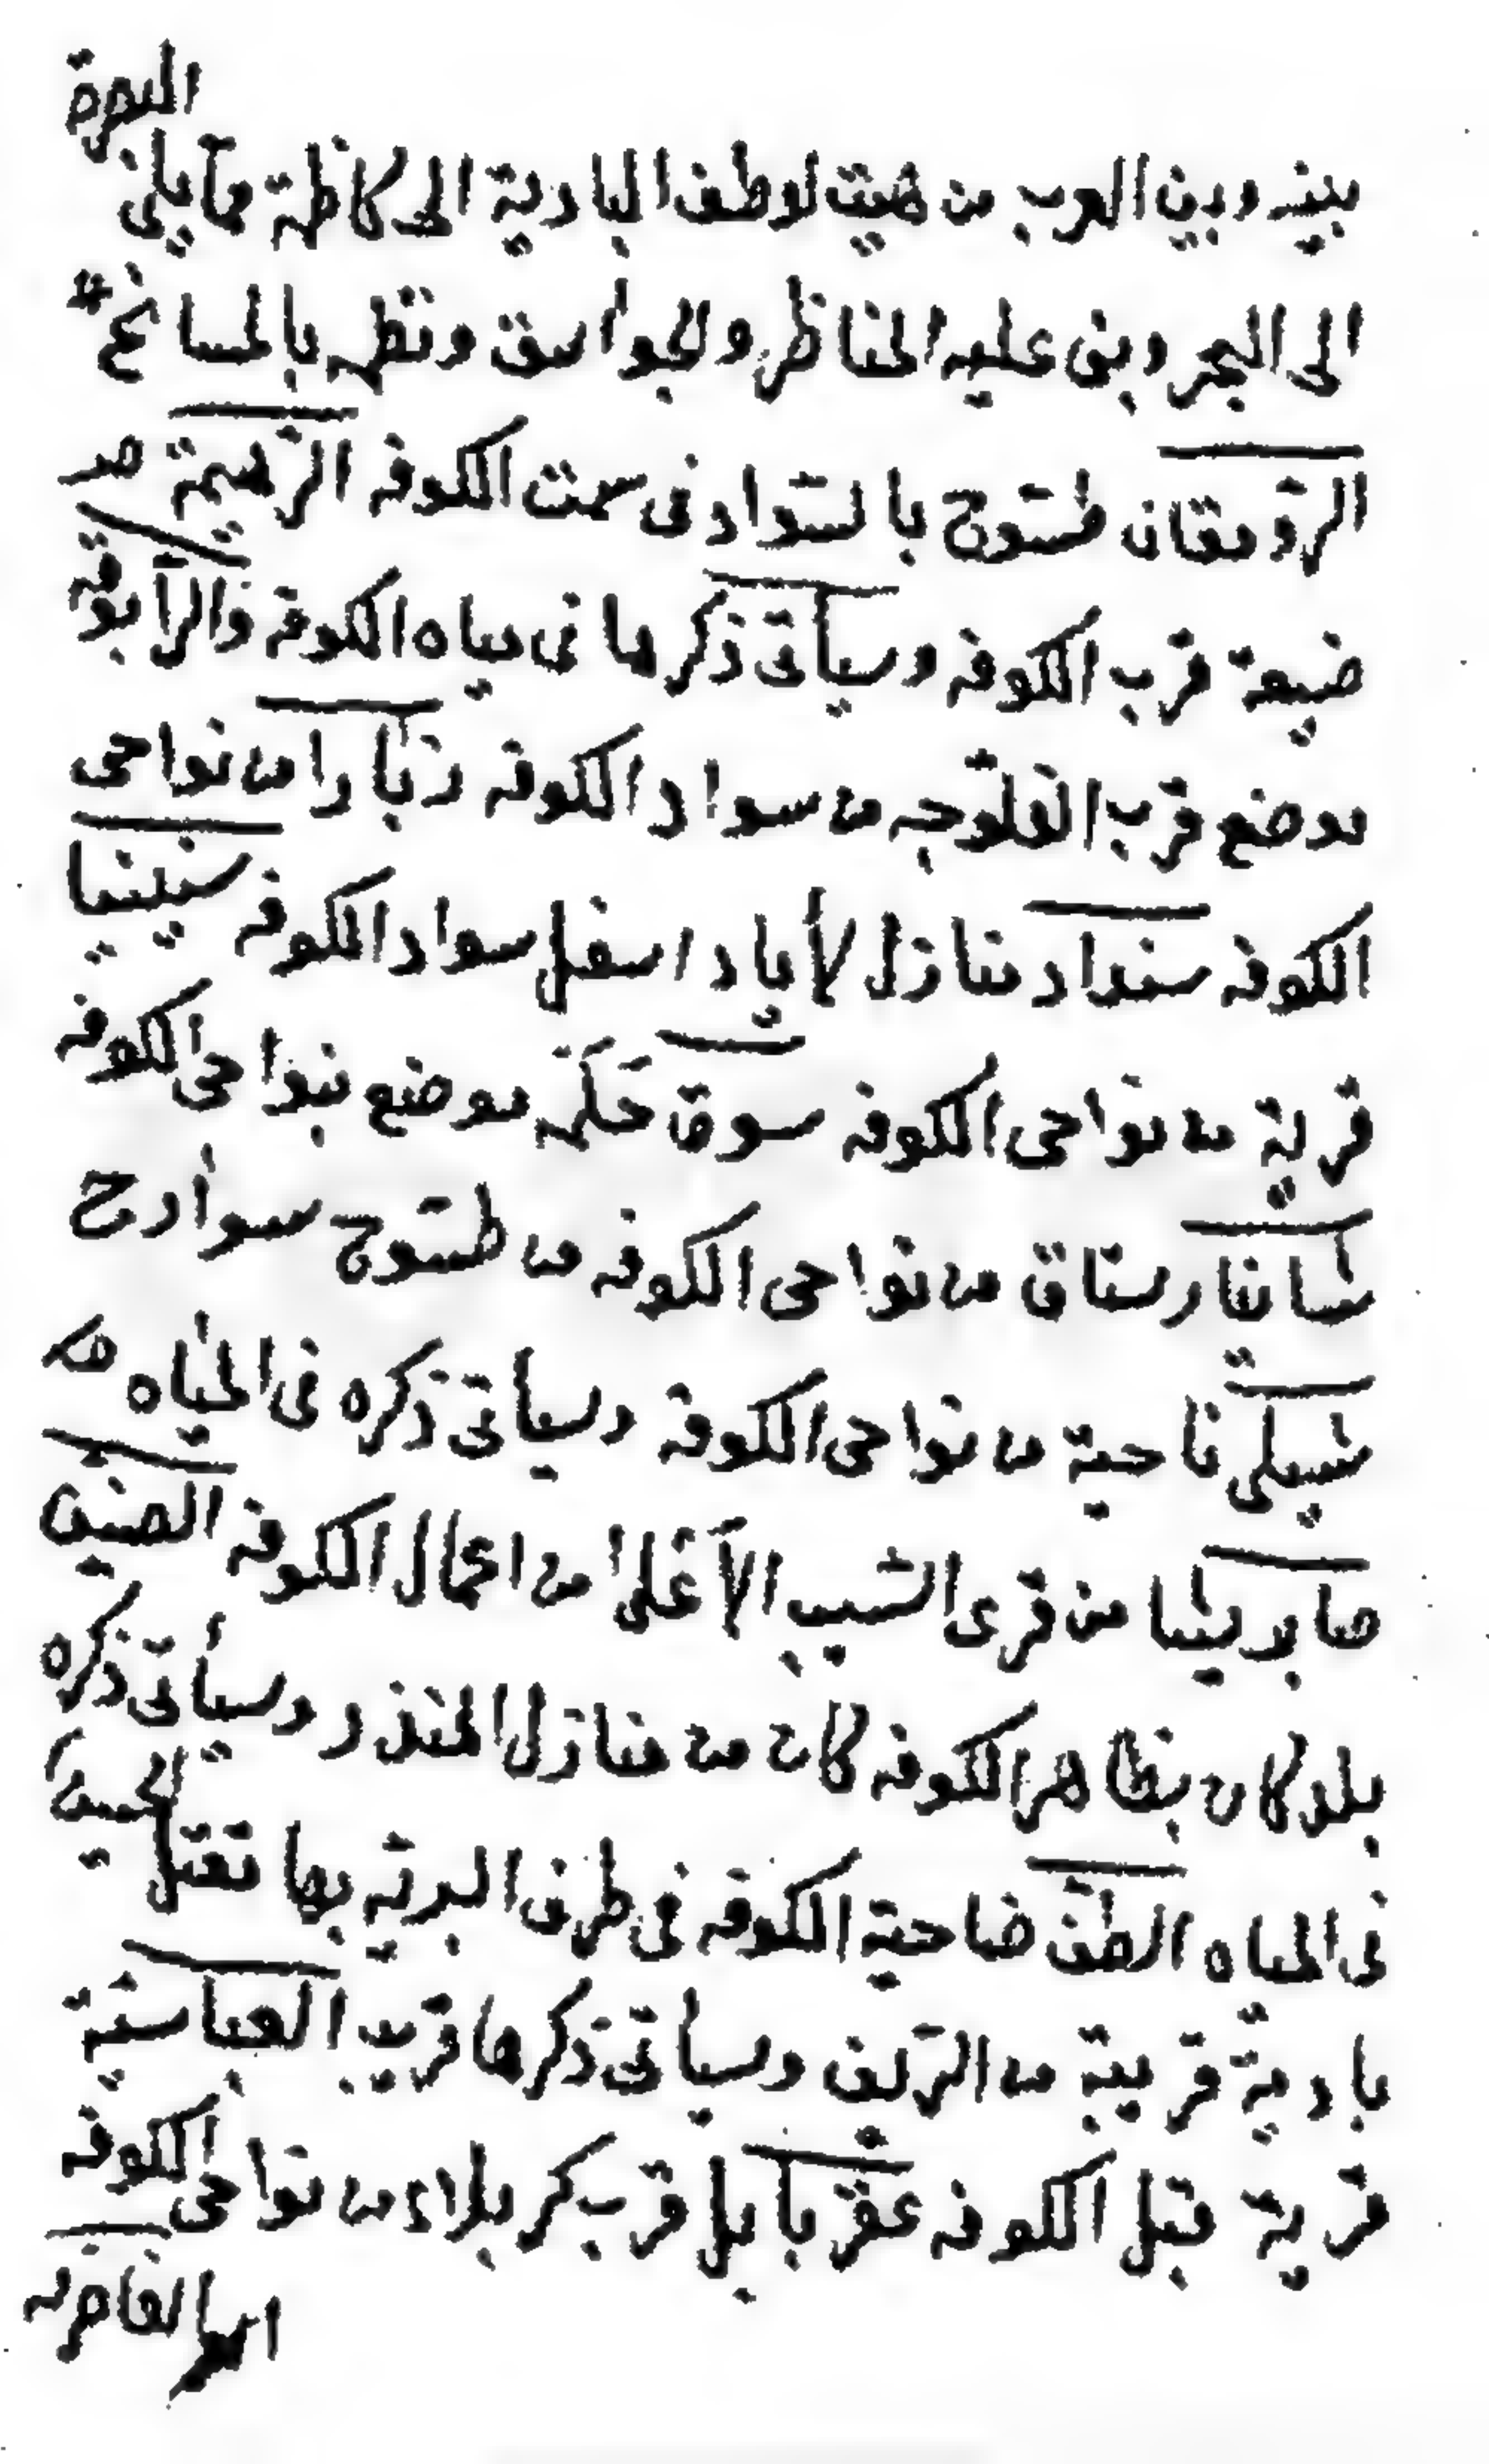 البصرة
بينه وبين العرب من هيت لوطف البادية الى كاظمة مما يلي
الى البحر وبنى عليه المناظر والجواسق ونظمه بالمسائح
الرومقان طسوج بالسواد فى سمت الكوفه الرهيمة
ضيعة قرب الكوفه وسيأتى ذكرها فى مياه الكوفة الرابوقه
موضع قرب الفلوجه من سواد الكوفه زبارا من نواحى
الكوفه سنداد منازل لأياد اسفل سواد الكوفه سينينيا
قرية من نواحى الكوفه سوق حكمه موضع بنواحى الكوفه
شانيا رستاق من نواحى الكوفه من طسوج سوادح
شيلى ناحية من نواحى الكوفه وسيأتى ذكره فى المياه
صابرنيثا من قرى السيب الأعلى من اعمال الكوفه الصنين
بلد كان بظاهر الكوفه كان من منازل المنذر وسيأتى ذكره
فى المياه الطف ضاحية الكوفه فى طرف البرية بها مقتل الحسين
بادية قريبة من الريف وسيأتى ذكرها قريب العباسية
قرية قبل الكوفه عقر بابل قرب كربلاء من نواحى الكوفه
الغاضريه